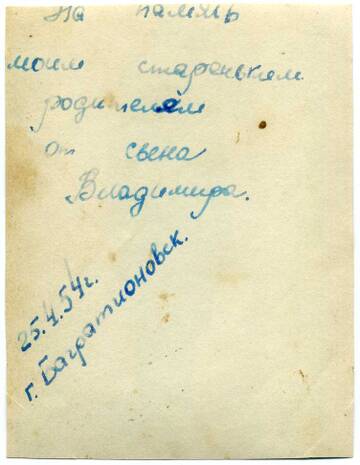 На память
моим стареньким
родителям
от сына
Владимира.
25.4.54г.
г. Багратионовск.